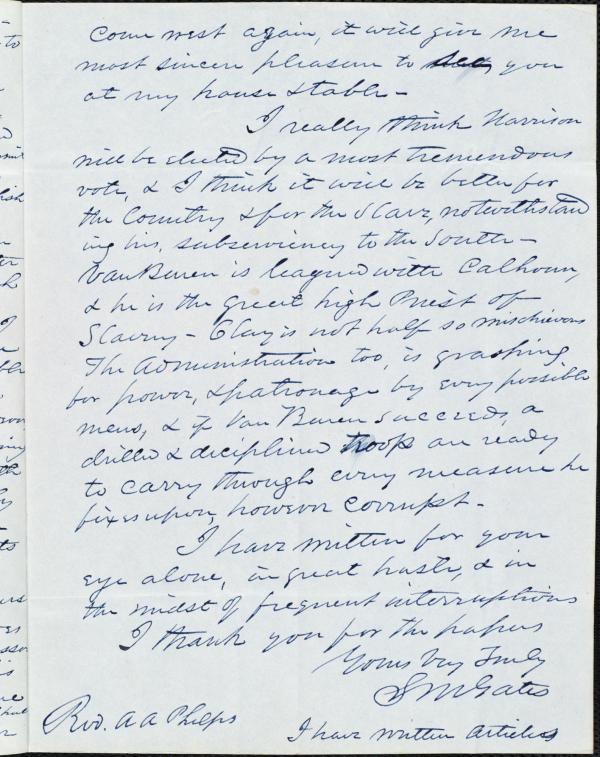 Come west again, it will give me
most sincere pleasure to see you
at my house & table –
I really think Harrison
will be elected by a most tremendous
vote, & I think it will be better for
the Country & for the Slave, notwithstand
ing his, subserviency to the South –
Van Buren is leagued with Calhoun,
& he is the great high Priest of
Slavery – Clay is not half so mischievous
The Administration too, is grasping
for power, & patronage by every possible
means, & if Van Buren succeeds, a
drilled & diciplined troops are ready
to carry through every measure he
fixes upon, however corrupt –
I have written for your
eye alone, in great haste, & in
the midst of frequent interruptions
I thank you for the papers
Yours Very Truly
S M Gates
Rev. A A Phelps
I have written articles